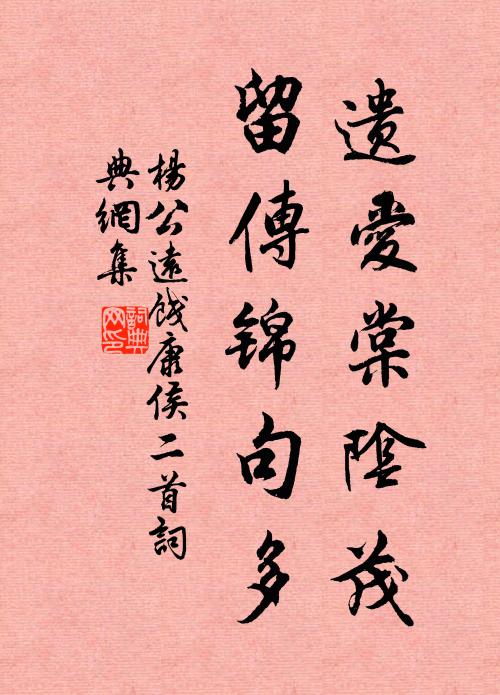 遺愛棠陰茂
留傳錦句多
楊公遠餞康侯二首詞
典網集
詞典网印